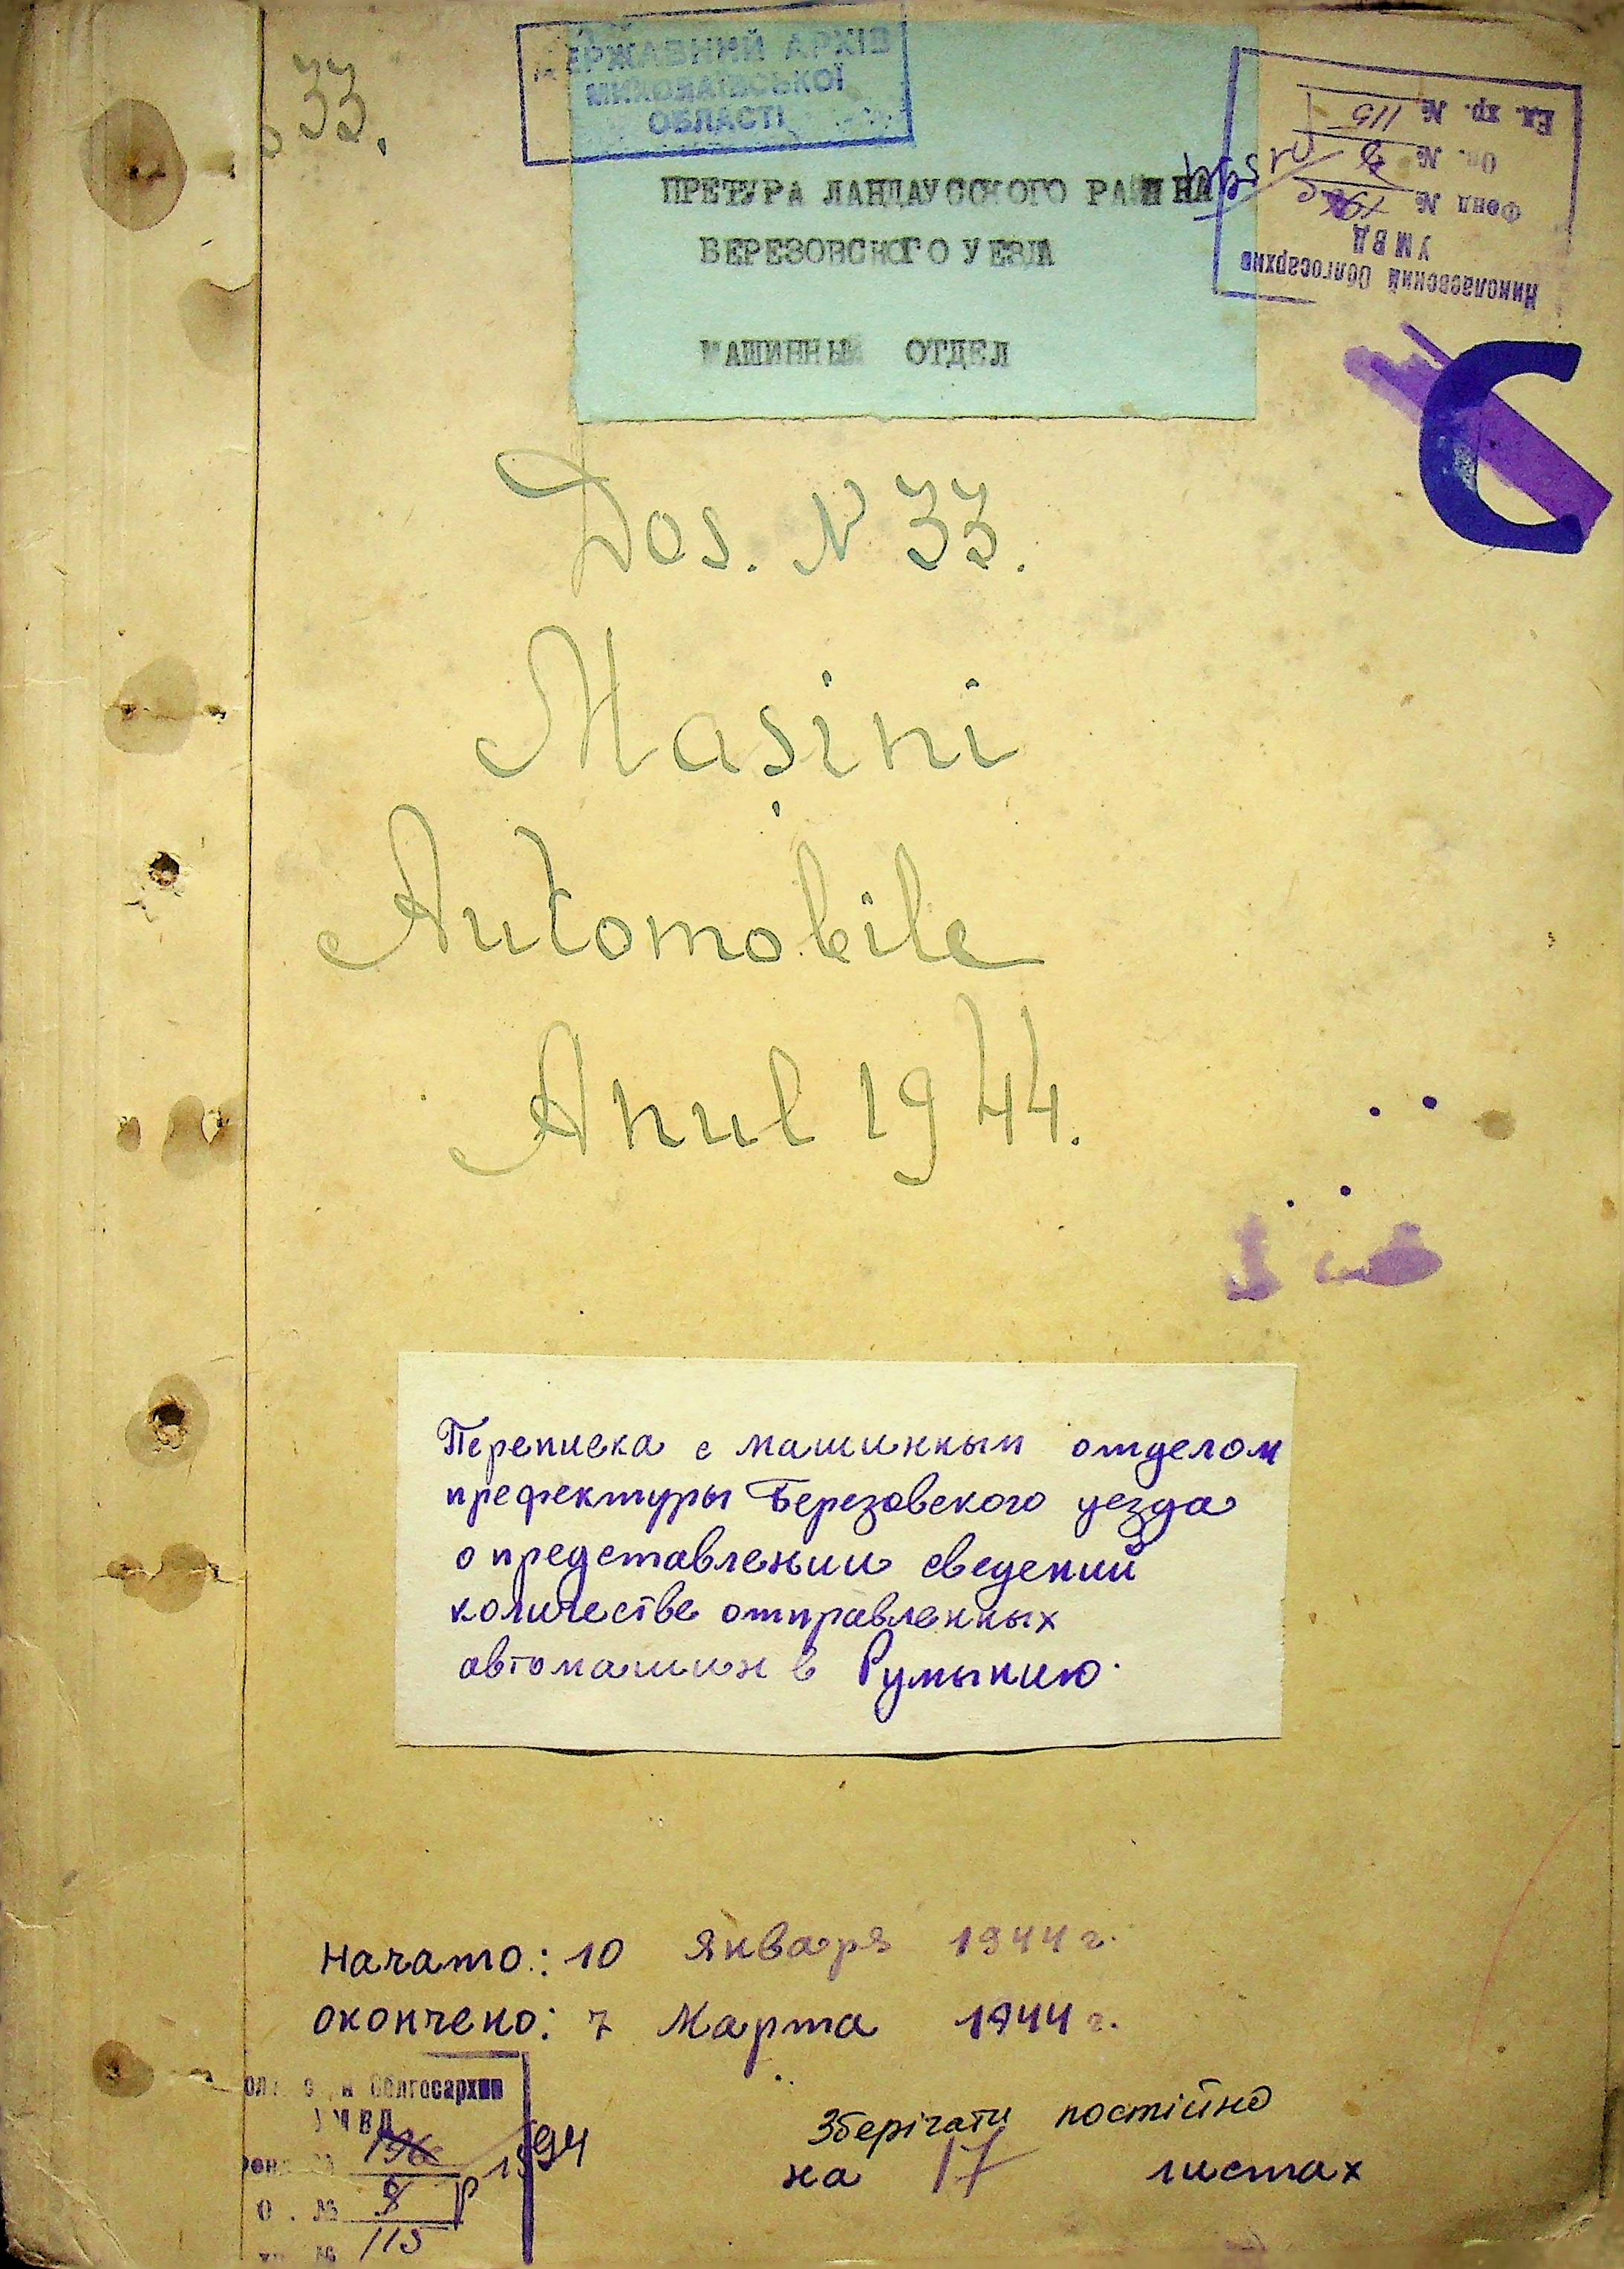 33.
ДЕРЖАВНИЙ АРХІВ
МИКОЛАЇВСЬКОЇ
ОБЛАСТІ
Николаевский Облгосархив
УМВД
Фонд №
Оп. №
Ед. хр. № 115
ПРЕТУРА ЛАНДАУССКОГО РАЙ НА
БЕРЕЗОВСКОГО УЕЗДА
МАШИННЫЙ ОТДЕЛ
С
Dos. N 33.
Mașini
Automobile
Anul 1944.
Переписка с машинным отделом
префектуры Березовского уезда
о представлении сведений
количестве отправленных
автомашин в Румынию.
Начато: 10 января 1944 г.
окончено: 7 Марта 1944 г.
Зберігати постійно
на 17 листах
облгосархив
УМВД
1594
О . №
115